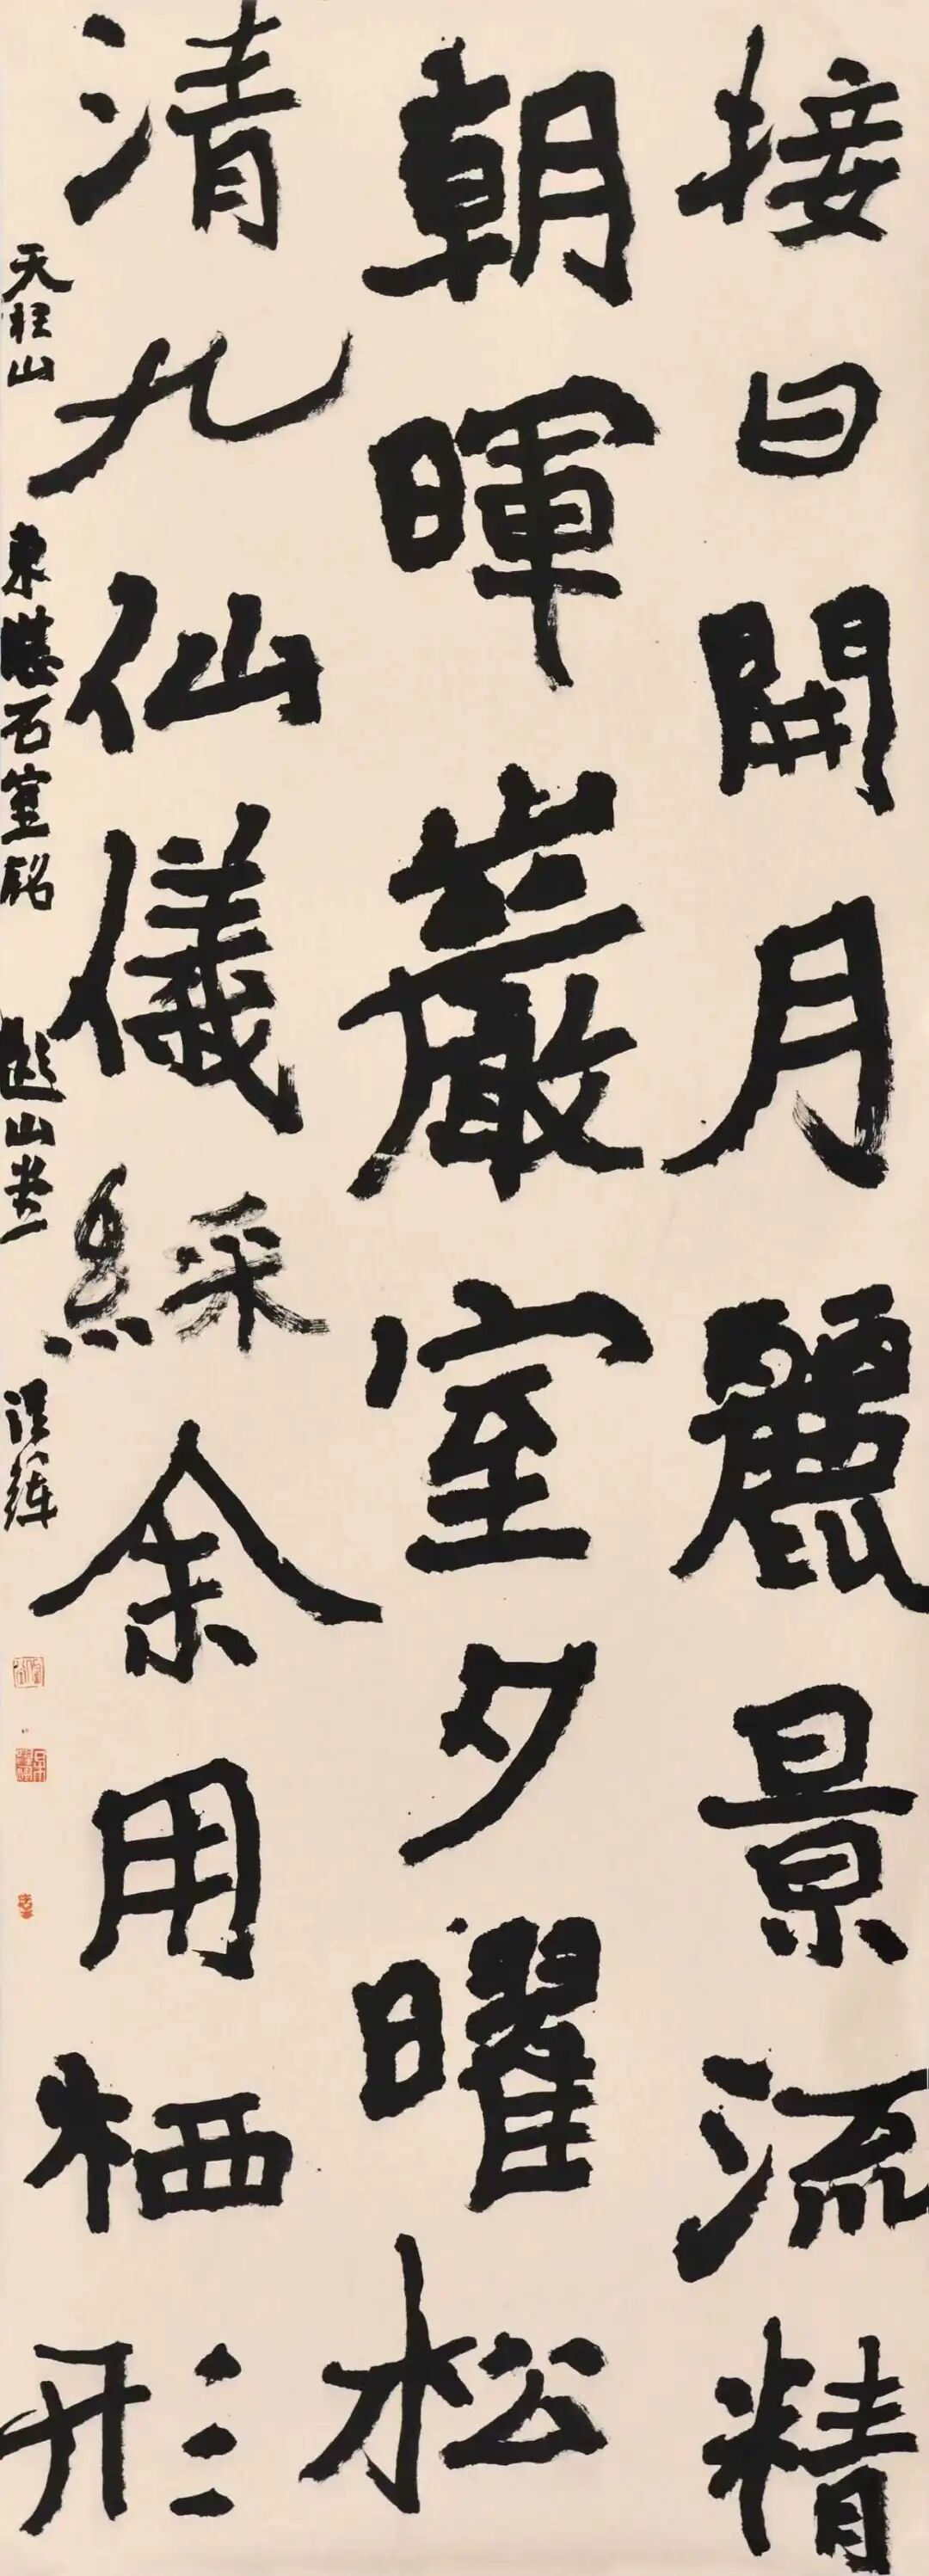 接日開月麗景流精
朝暉巖室夕曜松
清九仙儀綵余用栖形
天柱山 東堪石室銘 山